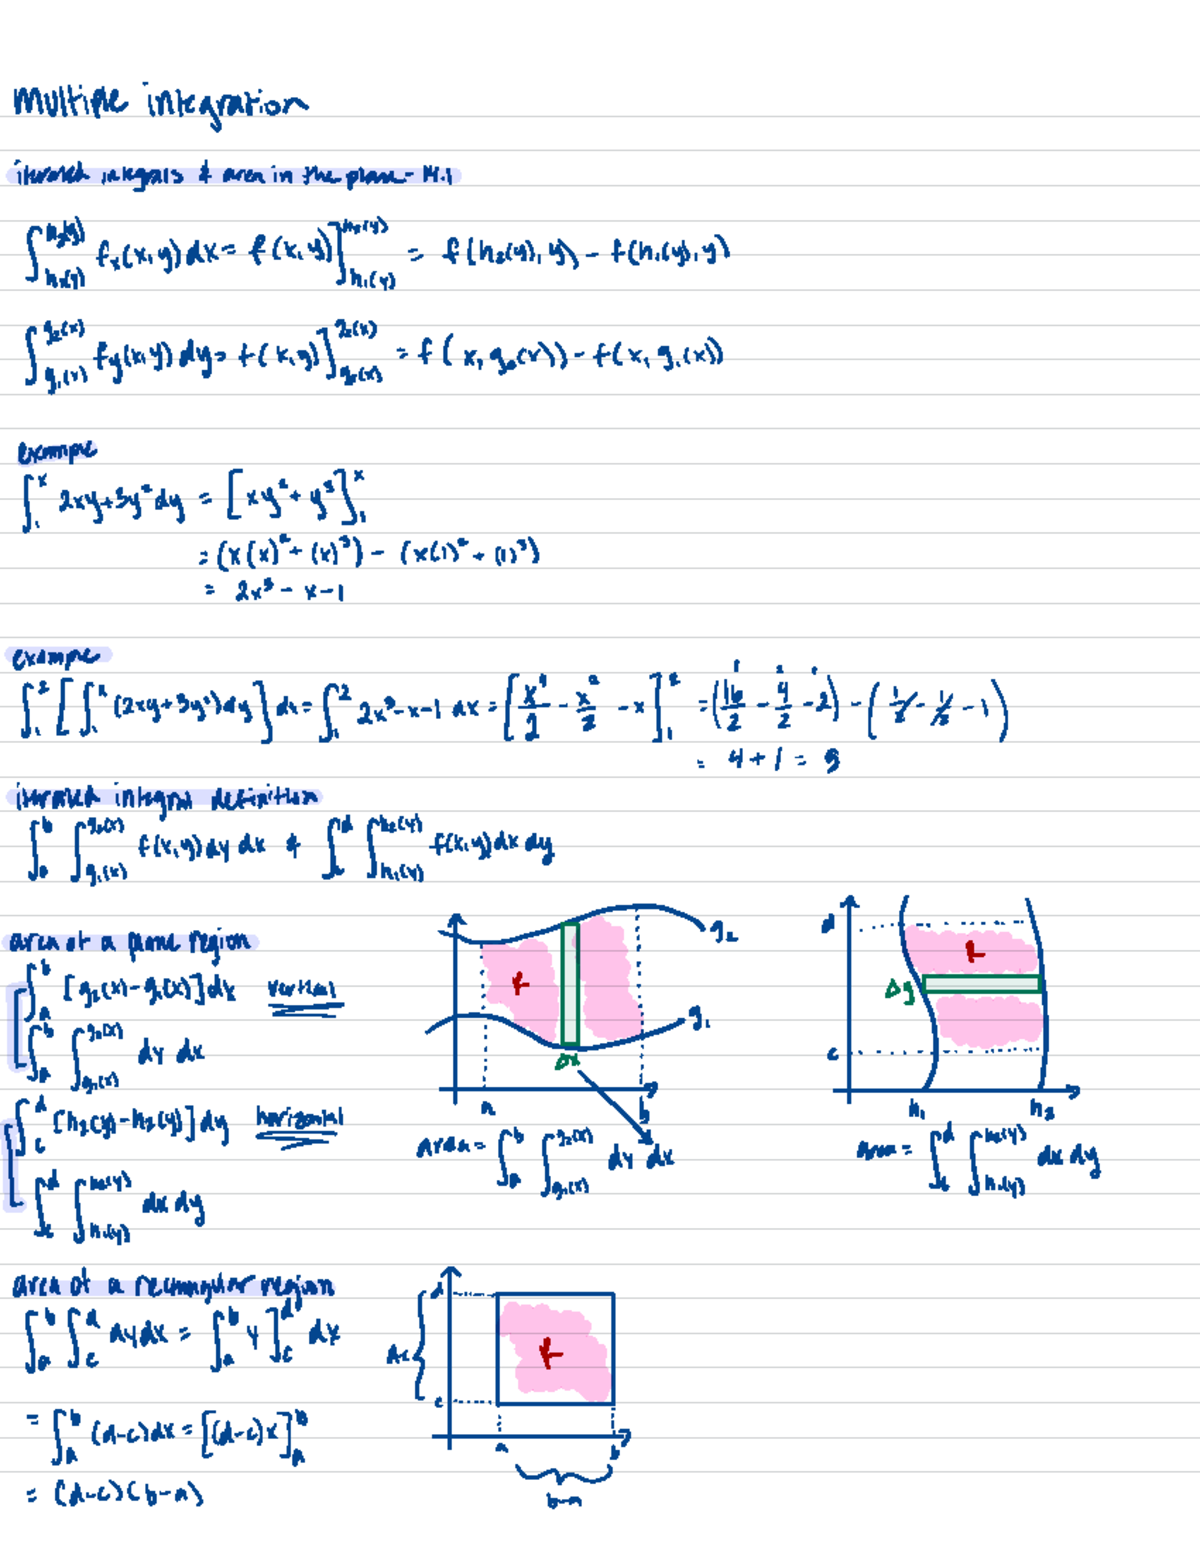 multiple integration
iterated integrals & area in the plane - 14.1
∫_{h₁(y)}^{h₂(y)} fₓ(x,y) dx = f(x,y)]_{h₁(y)}^{h₂(y)} = f(h₂(y), y) - f(h₁(y), y)
∫_{g₁(x)}^{g₂(x)} fy(x,y) dy = f(x,y)]_{g₁(x)}^{g₂(x)} = f(x, g₂(x)) - f(x, g₁(x))
example
∫₁ˣ 2xy+3y² dy = [xy² + y³]₁ˣ
= (x(x)² + (x)³) - (x(1)² + (1)³)
= 2x³ - x - 1
example
∫₁² [∫₁ˣ (2xy+3y²) dy] dx = ∫₁² 2x³-x-1 dx = [x⁴/2 - x²/2 - x]₁² = (16/2 - 4/2 - 2) - (1/2 - 1/2 - 1)
= 4+1 = 5
iterated integral definition
∫_a^b ∫_{g₁(x)}^{g₂(x)} f(x,y) dy dx & ∫_c^d ∫_{h₁(y)}^{h₂(y)} f(x,y) dx dy
area of a plane region
∫_a^b [g₂(x)-g₁(x)] dx vertical
∫_a^b ∫_{g₁(x)}^{g₂(x)} dy dx
∫_c^d [h₂(y)-h₂(y)] dy horizontal
∫_c^d ∫_{h₁(y)}^{h₂(y)} dx dy
g₂
R
g₁
Δx
a b
area = ∫_a^b ∫_{g₁(x)}^{g₂(x)} dy dx
d
R
Δy
c
h₁ h₂
area = ∫_c^d ∫_{h₁(y)}^{h₂(y)} dx dy
area of a rectangular region
∫_a^b ∫_c^d dy dx = ∫_a^b y]_c^d dx
= ∫_a^b (d-c) dx = [(d-c)x]_a^b
= (d-c)(b-a)
d
R
c
a b
b-a